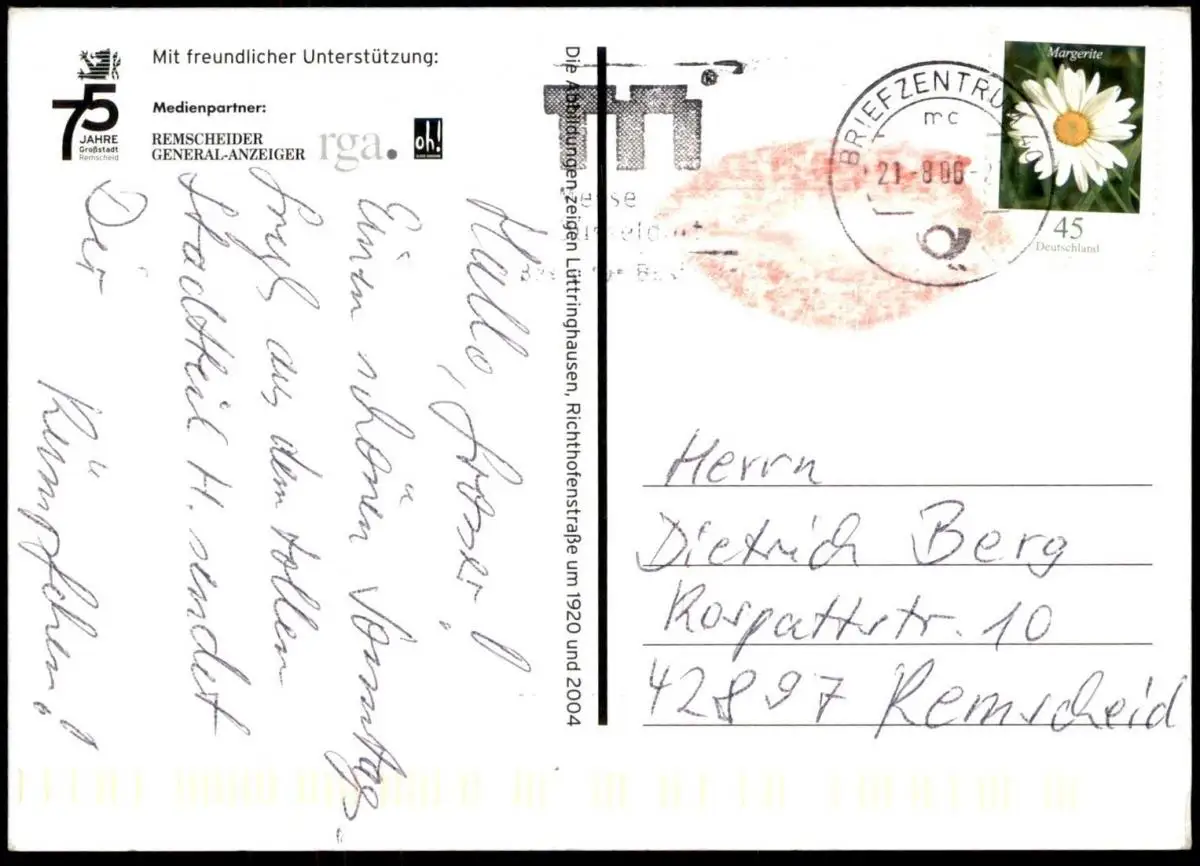 Mit freundlicher Unterstützung:
75
JAHRE
Großstadt
Remscheid
Medienpartner:
REMSCHEIDER
GENERAL-ANZEIGER
rga.
oh!
Die Abbildungen zeigen Lüttringhausen, Richthofenstraße um 1920 und 2004
Hallo,
Einen schönen
aus dem tollen
Stadtteil H. sendet
Dir
BRIEFZENTRUM
mc
21-8.06
Margerite
45
Deutschland
Herrn
Dietrich Berg
Rospattstr. 10
42897 Remscheid